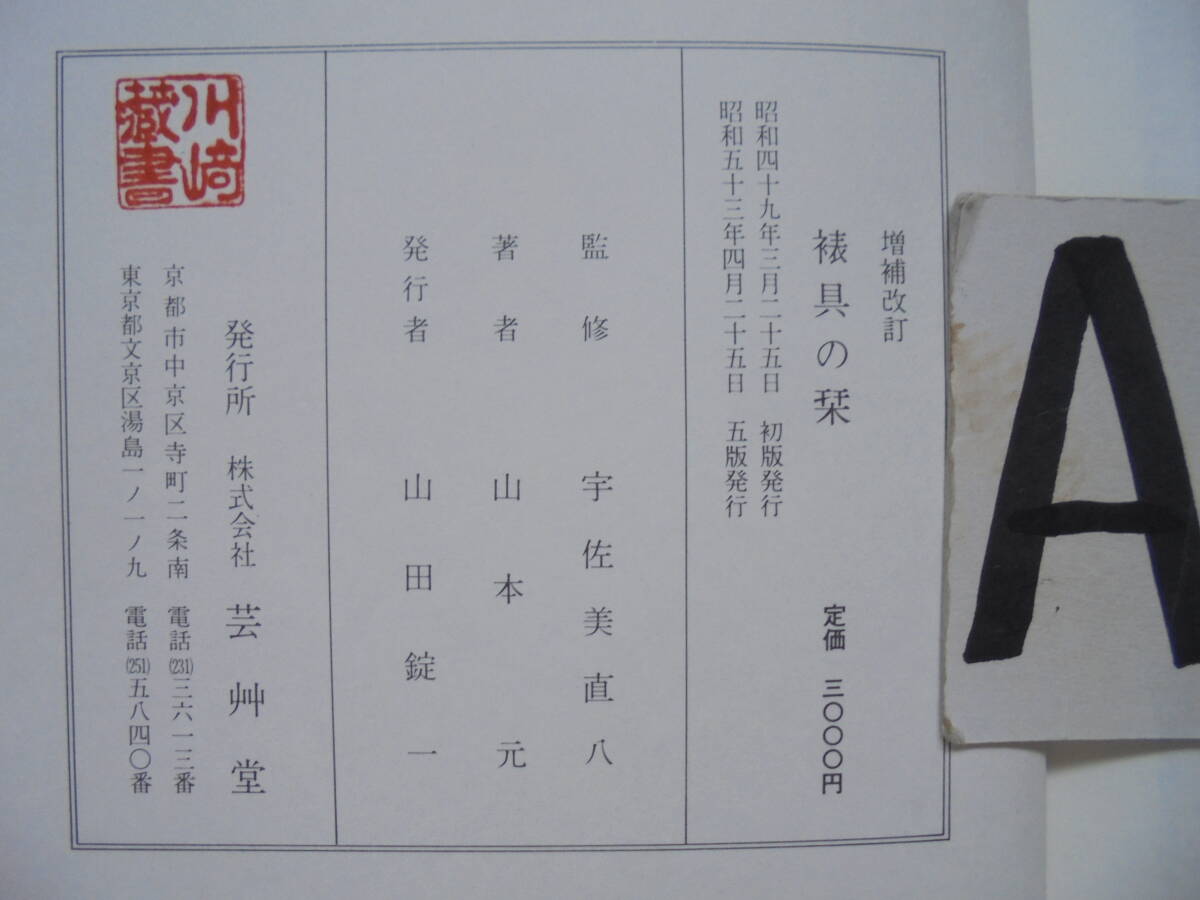 増補改訂
裱具の栞
定価 三〇〇〇円
昭和四十九年三月二十五日 初版発行
昭和五十三年四月二十五日 五版発行
監修 宇佐美直八
著者 山本元
発行者 山田錠一
発行所 株式会社 芸艸堂
京都市中京区寺町二条南 電話(231)三六一三番
東京都文京区湯島一ノ一ノ九 電話(251)五八四〇番
川﨑
蔵書
A